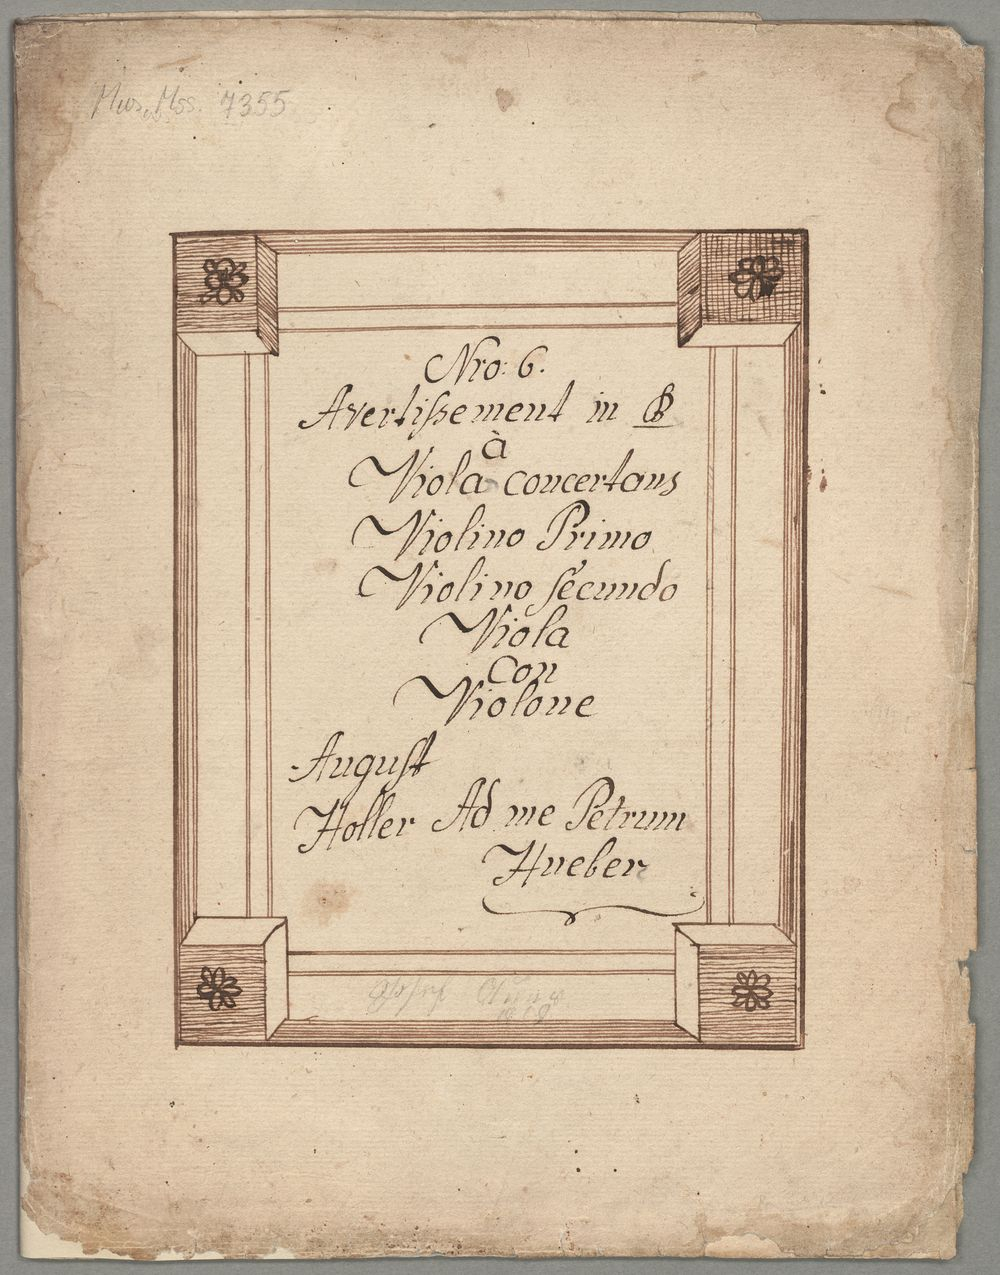 Mus. Mss. 7355
Nro: 6.
Avertißement in B
à
Viola concertans
Violino Primo
Violino secundo
Viola
con
Violone
August
Holler Ad me Petrum
Hueber